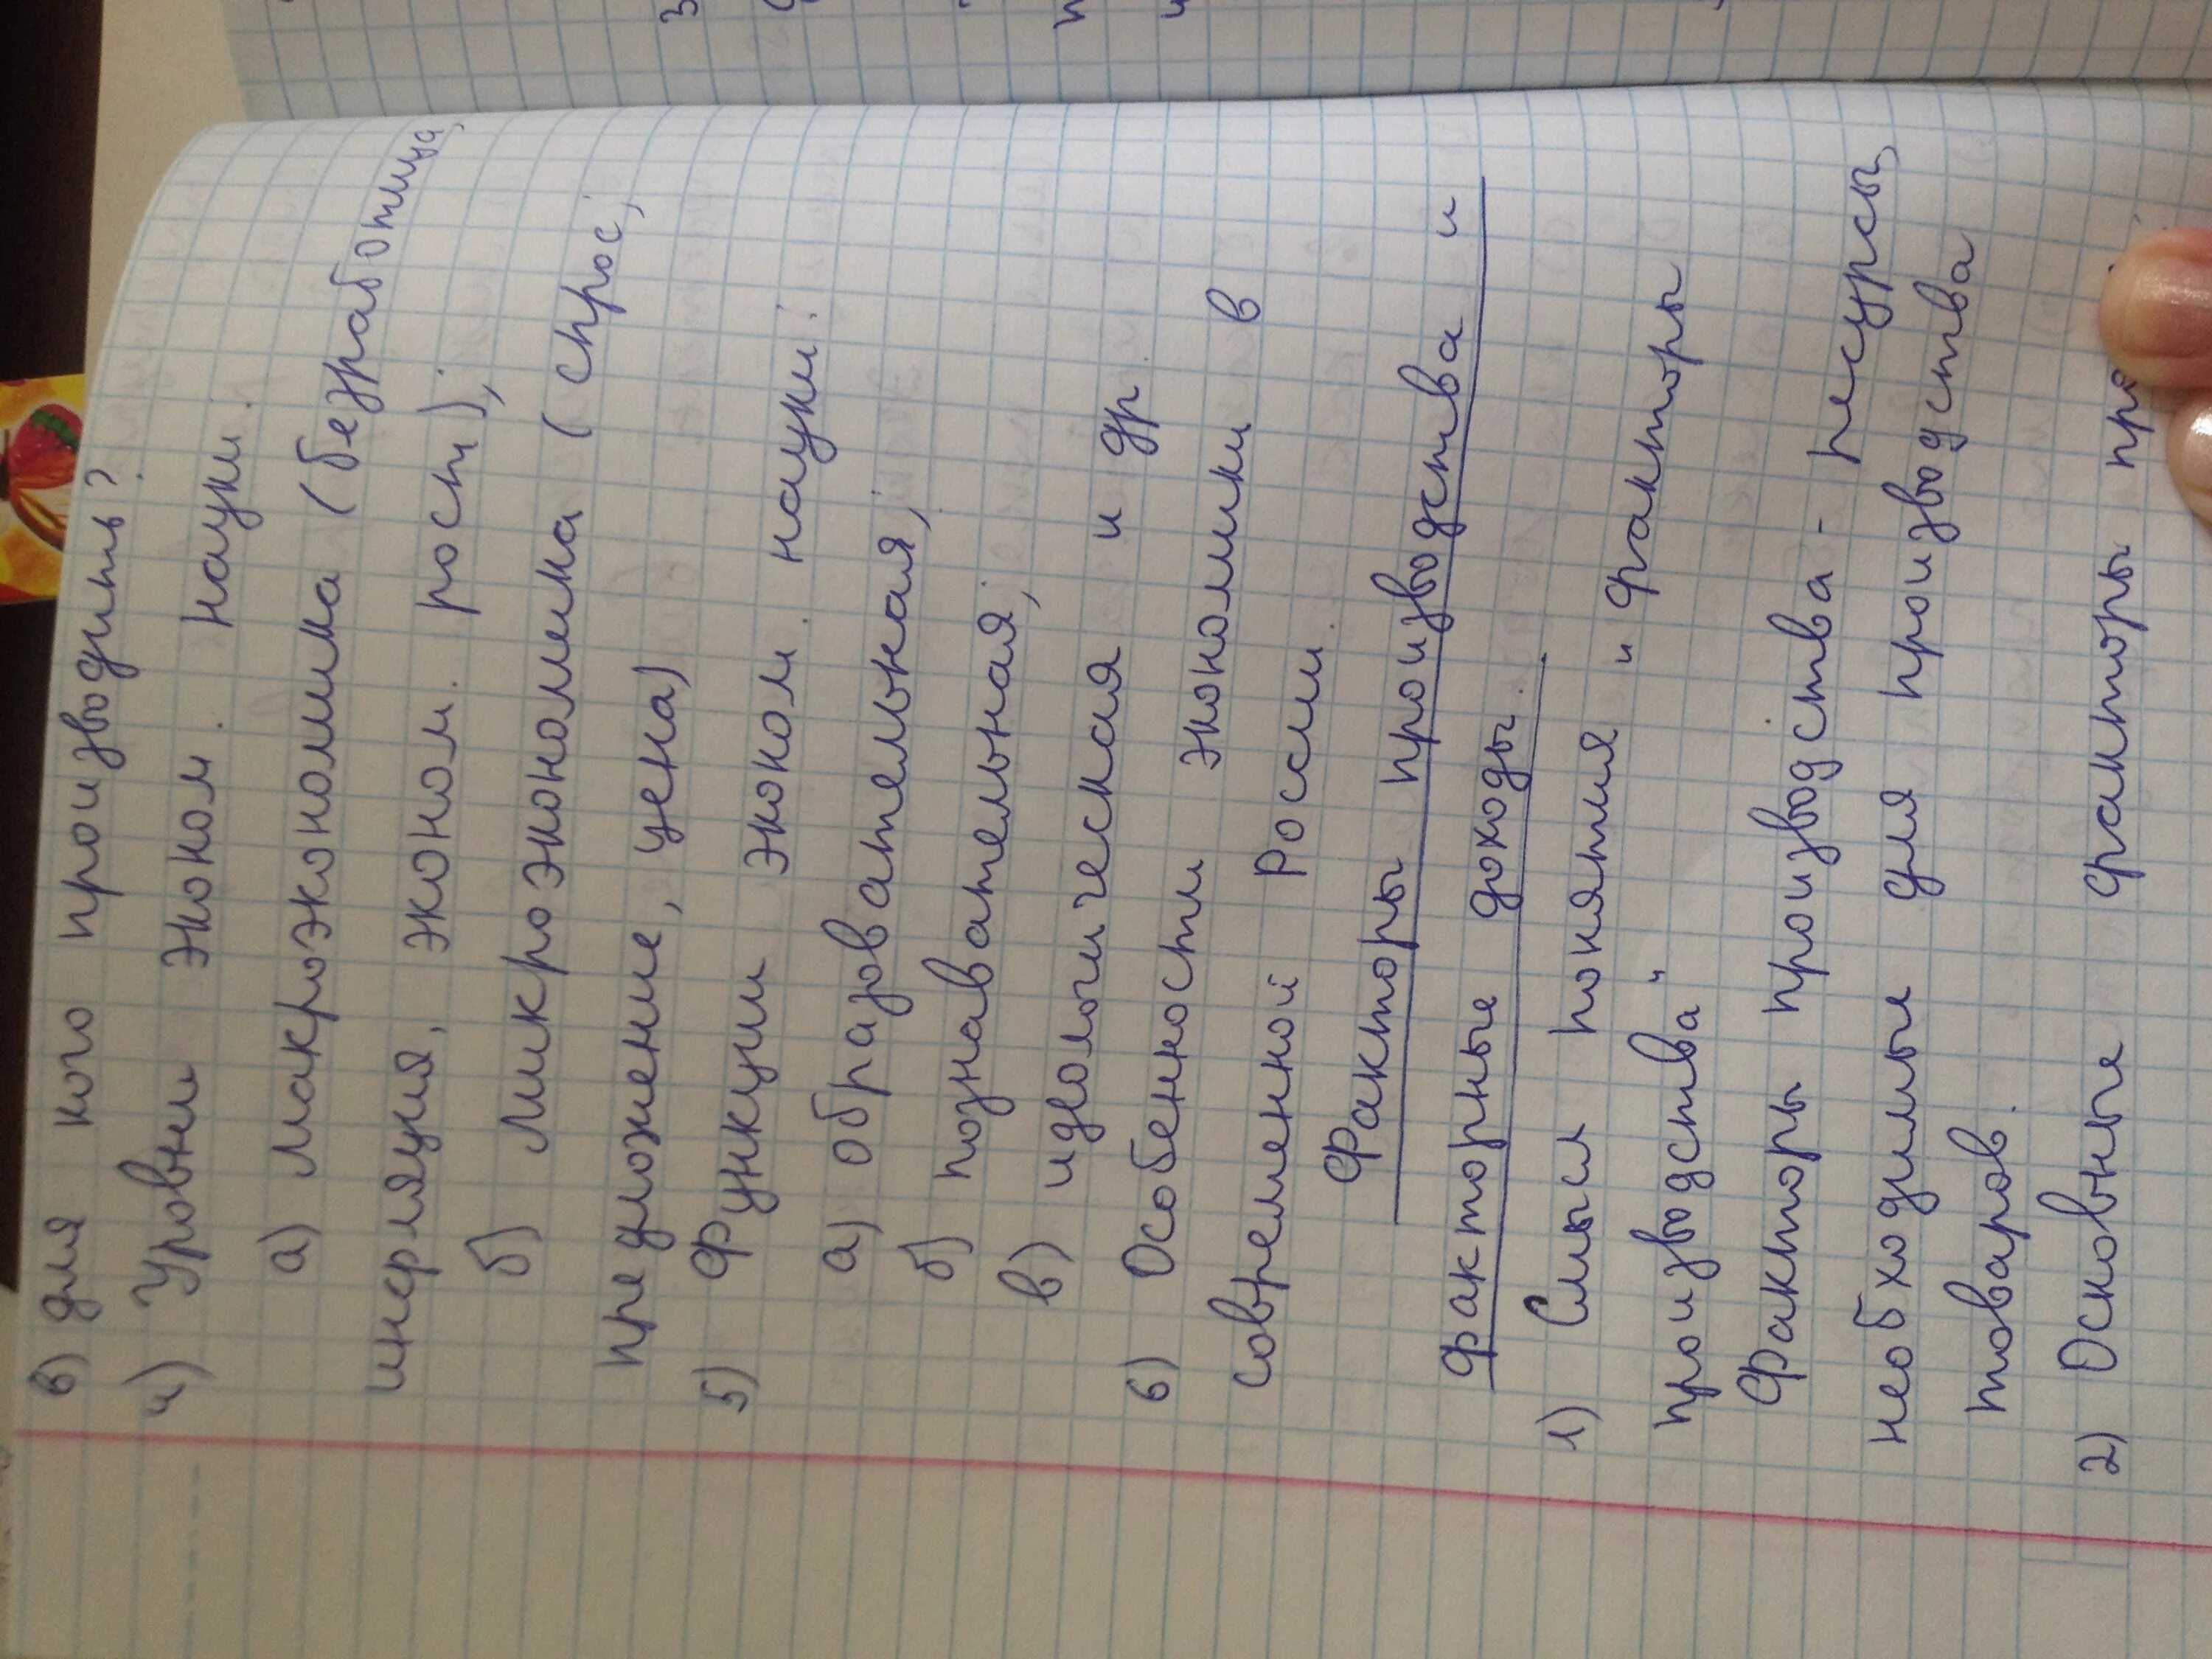 в) для кого производить?
4) Уровни эконом. науки.
а) макроэкономика (безработица,
инфляция, эконом. рост);
б) микроэкономика (спрос,
предложение, цена)
5) Функции эконом. науки:
а) образовательная;
б) познавательная;
в) идеологическая и др.
6) Особенности экономики в
современной России.
Факторы производства и
факторные доходы.
1) Смысл понятия "факторы
производства"
Факторы производства - ресурсы,
необходимые для производства
товаров.
2) Основные факторы